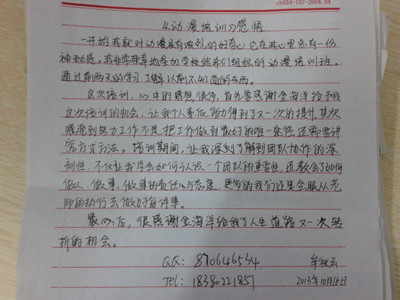 cbs64-107-2004.08
《动漫培训》感悟
一开始我就对动漫具有浓烈的好奇心,它在我心里总有一份
神秘感,我非常荣幸地参加学校给我们组织的动漫培训班。
通过前两天的学习,了解以前不知道的东西。
这次培训,心中的感想很多,首先要感谢金海洋给予我
这次培训的机会,让我个人素质能力得到了又一次的提升,其次
感到努力工作不是把工作做到最好的唯一条件,还需要讲
究方式方法。培训期间,让我深刻了解到团队协作的深
刻性,不仅让我学会如何去认识一个团队的重要性,还教会了如何
做人、做事,做事的责任心与态度,更多的我们还是会服从老
师的执行去做好每件事。
最后,很感谢金海洋给我了人生道路又一次转
折的机会。
QQ:
Tel: 18380221851
2013年10月18日